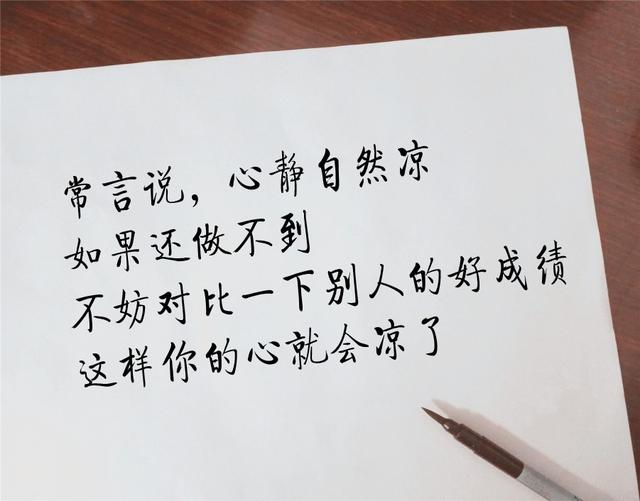 常言说，心静自然凉
如果还做不到
不妨对比一下别人的好成绩
这样你的心就会凉了